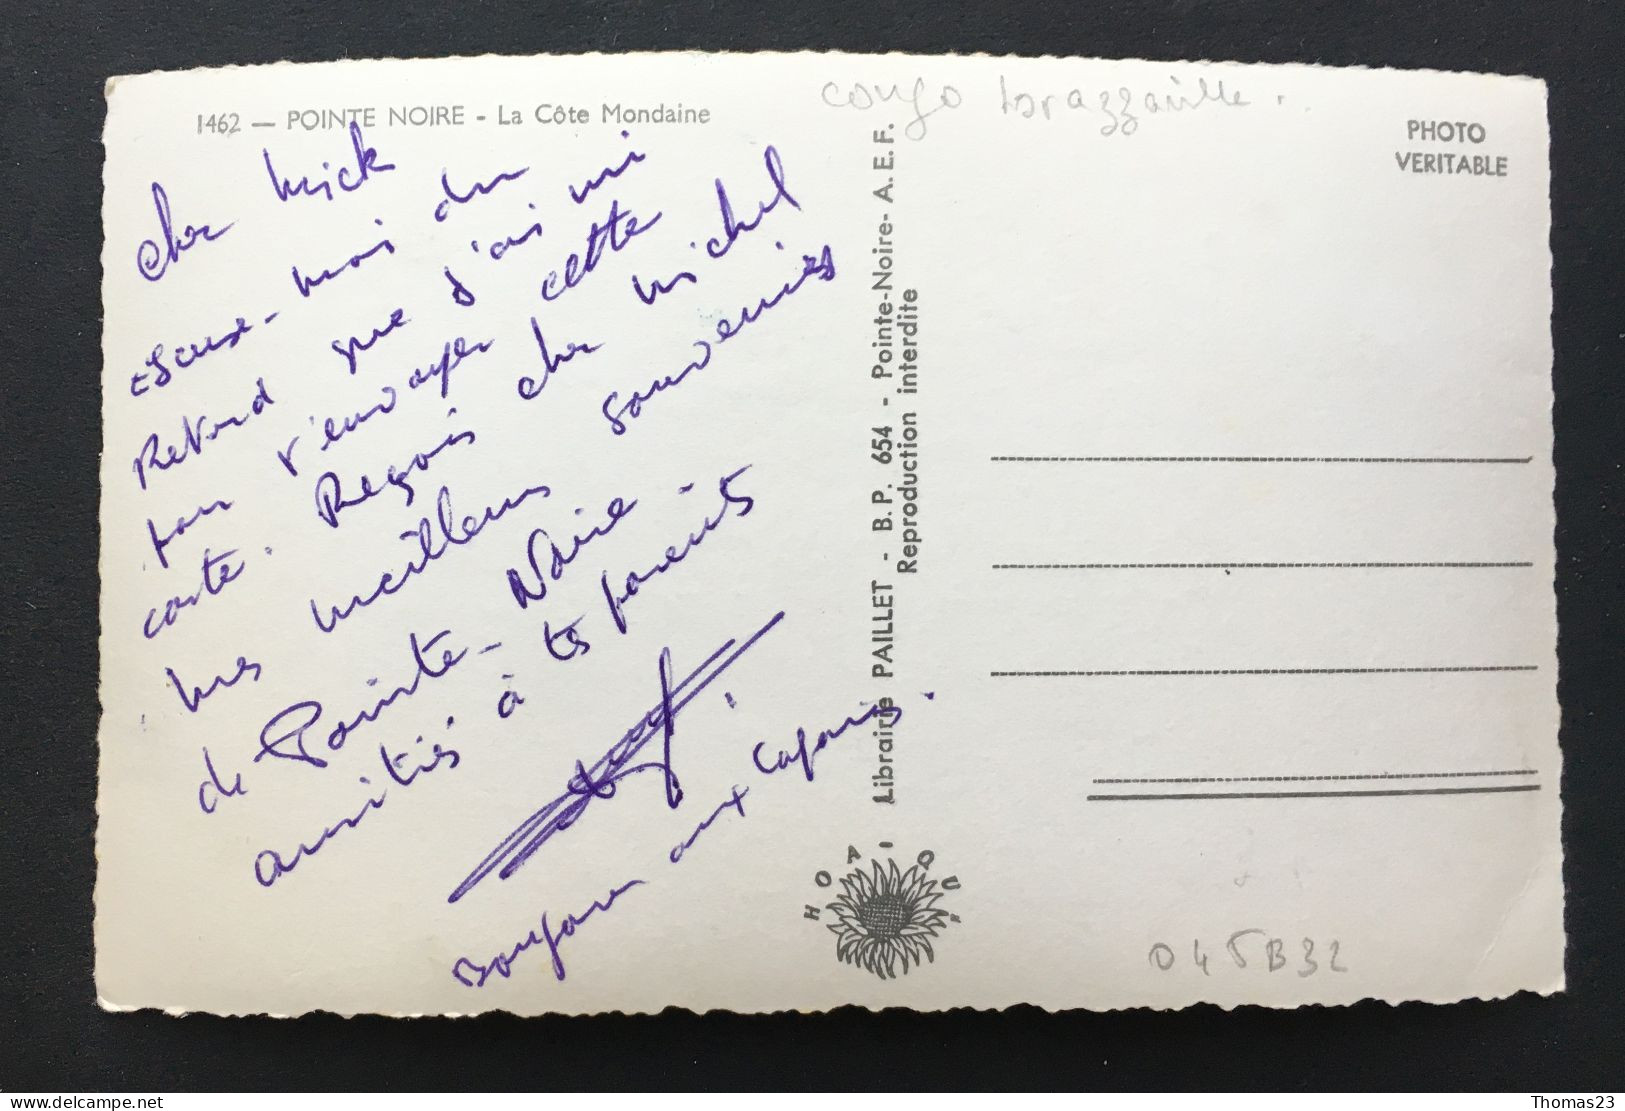 1462 — POINTE NOIRE - La Côte Mondaine
congo brazzaville.
PHOTO
VERITABLE
cher Mick
Excuse-moi du
Retard que j'ai mi
pour t'envoyer cette
carte. Reçois cher Michel
mes meilleurs souvenirs
de Pointe-Noire -
amitiés à tes parents
Bonjour aux copains.
Librairie PAILLET - B.P. 654 - Pointe-Noire- A.E.F.
Reproduction interdite
HOA-QUI
045B32
Thomas23